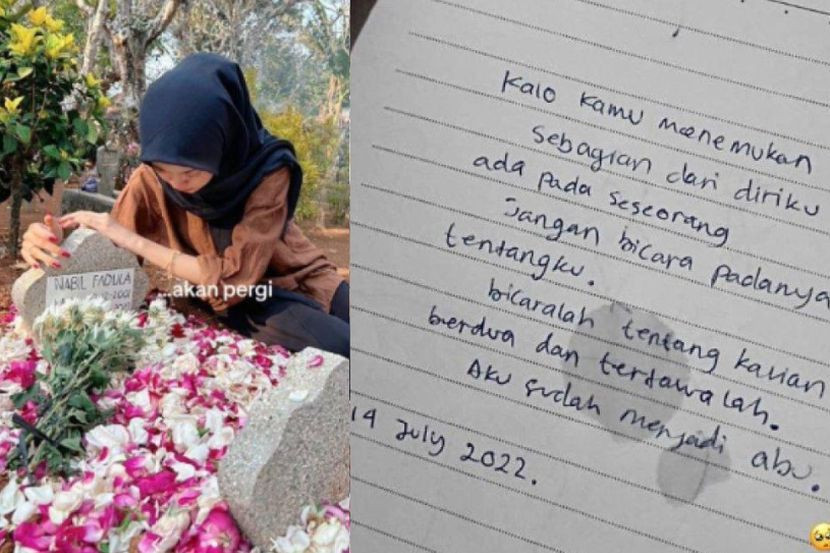 NABIL FADULA
..akan pergi
Kalo kamu menemukan
sebagian dari diriku
ada pada seseorang
Jangan bicara padanya
tentangku.
bicaralah tentang kalian
berdua dan tertawalah.
Aku sudah menjadi abu.
14 July 2022.